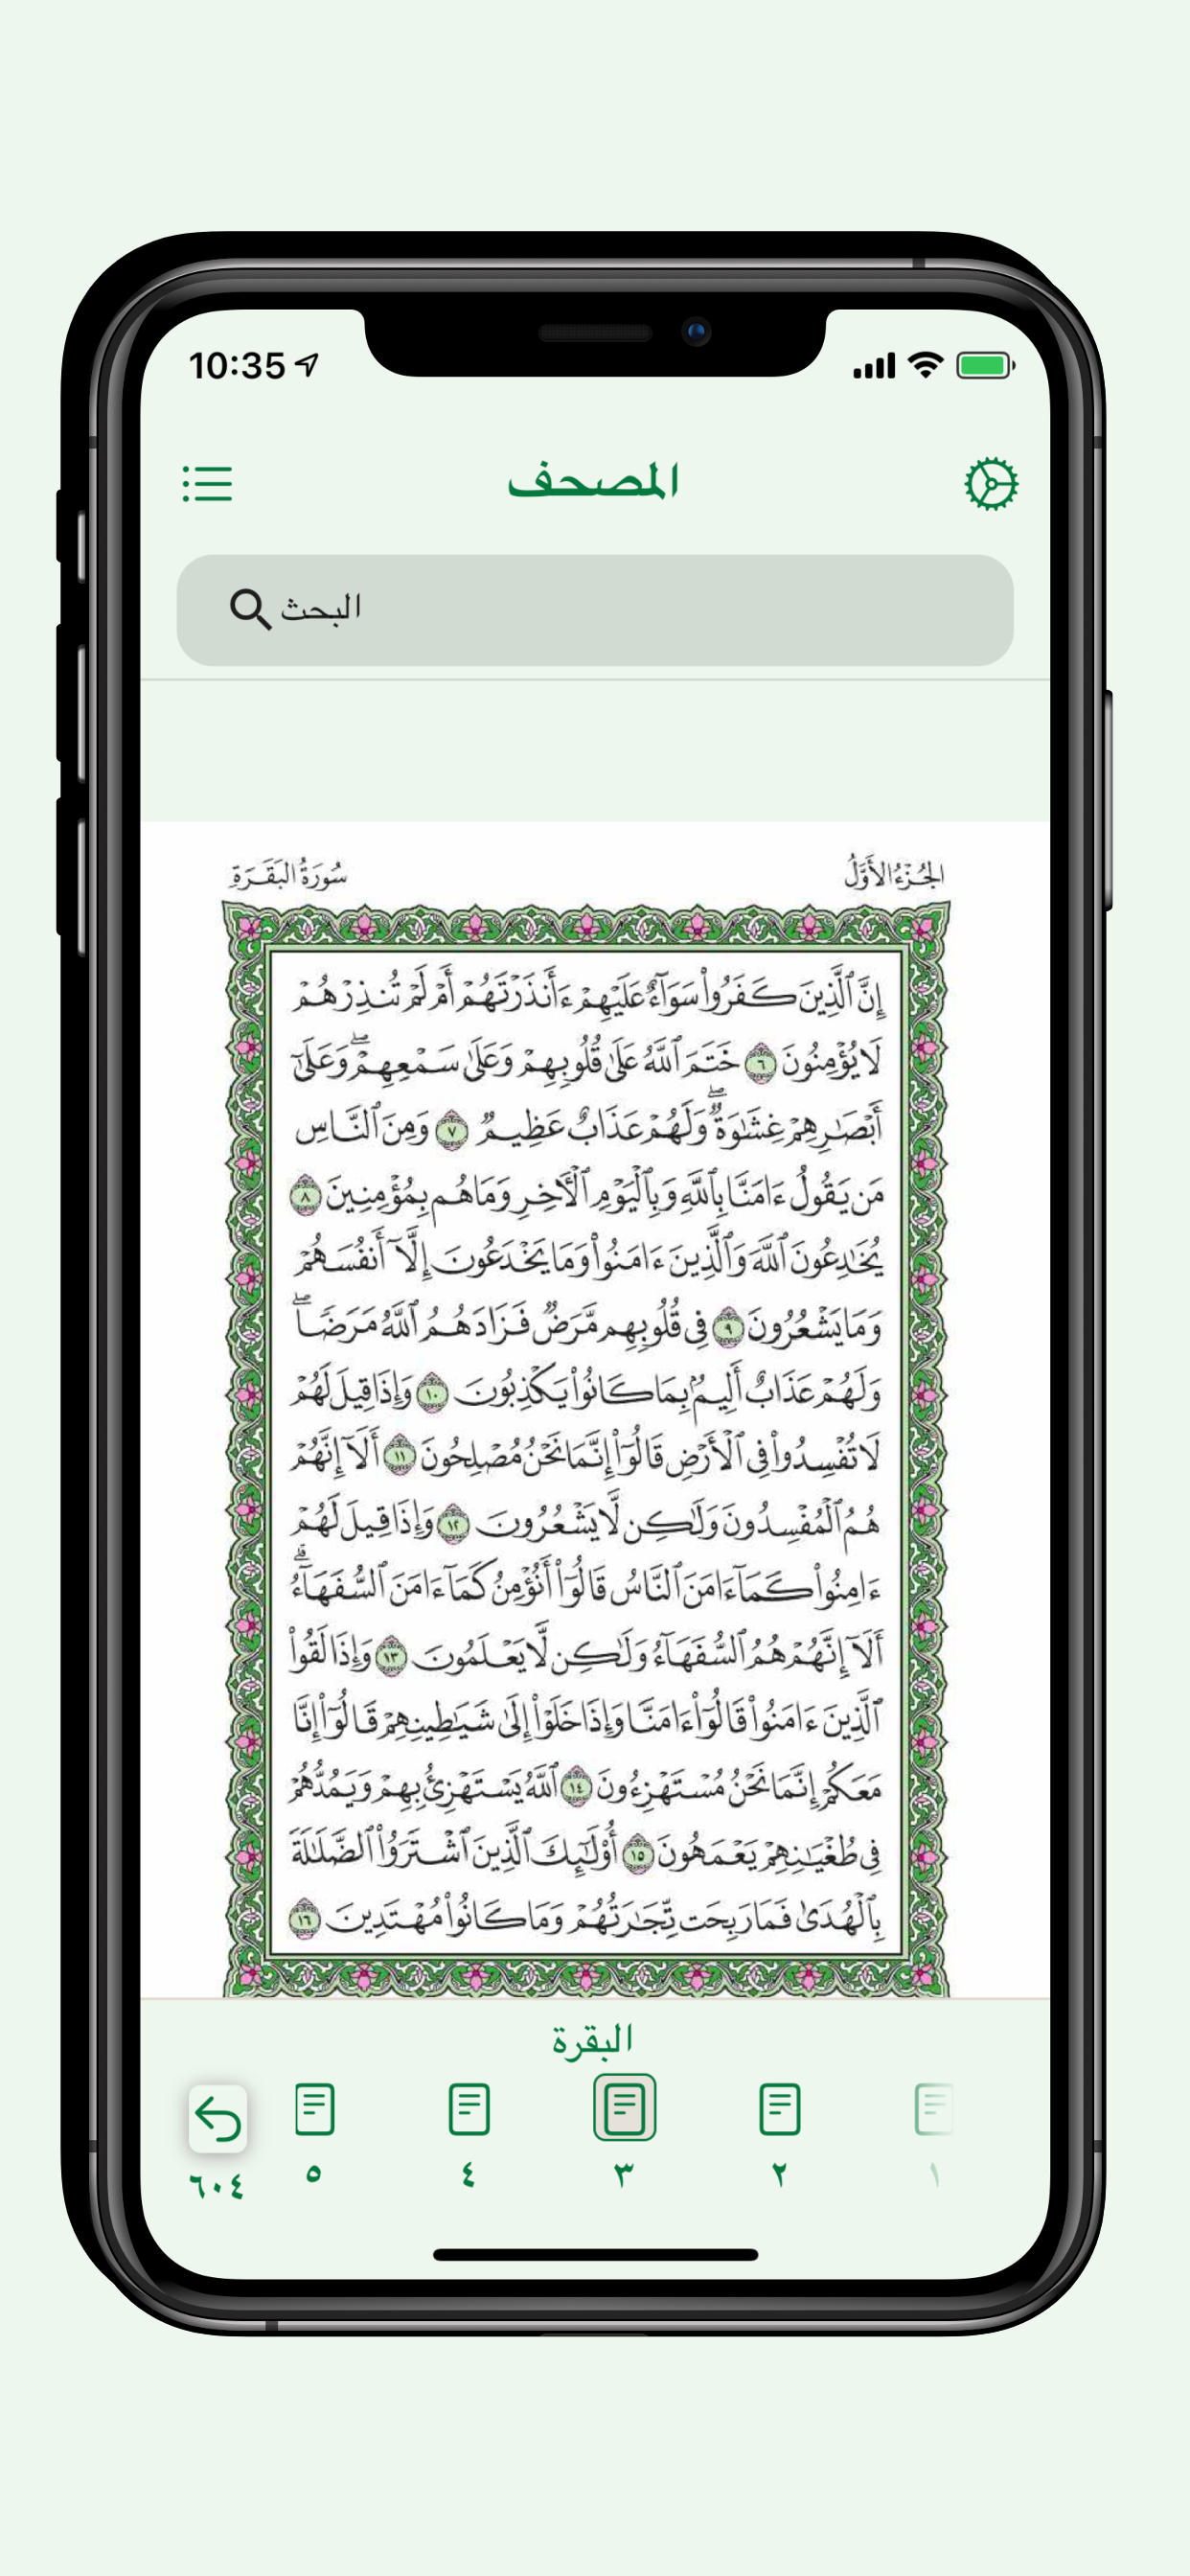 10:35
المصحف
البحث
الجُزْءُ الأَوَّلُ
سُورَةُ البَقَرَةِ
إِنَّ ٱلَّذِينَ كَفَرُواْ سَوَآءٌ عَلَيْهِمْ ءَأَنذَرْتَهُمْ أَمْ لَمْ تُنذِرْهُمْ
لَا يُؤْمِنُونَ ٦ خَتَمَ ٱللَّهُ عَلَىٰ قُلُوبِهِمْ وَعَلَىٰ سَمْعِهِمْۖ وَعَلَىٰٓ
أَبْصَٰرِهِمْ غِشَٰوَةٌۖ وَلَهُمْ عَذَابٌ عَظِيمٌ ٧ وَمِنَ ٱلنَّاسِ
مَن يَقُولُ ءَامَنَّا بِٱللَّهِ وَبِٱلْيَوْمِ ٱلْأٓخِرِ وَمَا هُم بِمُؤْمِنِينَ ٨
يُخَٰدِعُونَ ٱللَّهَ وَٱلَّذِينَ ءَامَنُواْ وَمَا يَخْدَعُونَ إِلَّآ أَنفُسَهُمْ
وَمَا يَشْعُرُونَ ٩ فِى قُلُوبِهِم مَّرَضٌ فَزَادَهُمُ ٱللَّهُ مَرَضًاۖ
وَلَهُمْ عَذَابٌ أَلِيمٌۢ بِمَا كَانُواْ يَكْذِبُونَ ١٠ وَإِذَا قِيلَ لَهُمْ
لَا تُفْسِدُواْ فِى ٱلْأَرْضِ قَالُوٓاْ إِنَّمَا نَحْنُ مُصْلِحُونَ ١١ أَلَآ إِنَّهُمْ
هُمُ ٱلْمُفْسِدُونَ وَلَٰكِن لَّا يَشْعُرُونَ ١٢ وَإِذَا قِيلَ لَهُمْ
ءَامِنُواْ كَمَآ ءَامَنَ ٱلنَّاسُ قَالُوٓاْ أَنُؤْمِنُ كَمَآ ءَامَنَ ٱلسُّفَهَآءُۗ
أَلَآ إِنَّهُمْ هُمُ ٱلسُّفَهَآءُ وَلَٰكِن لَّا يَعْلَمُونَ ١٣ وَإِذَا لَقُواْ
ٱلَّذِينَ ءَامَنُواْ قَالُوٓاْ ءَامَنَّا وَإِذَا خَلَوْاْ إِلَىٰ شَيَٰطِينِهِمْ قَالُوٓاْ إِنَّا
مَعَكُمْ إِنَّمَا نَحْنُ مُسْتَهْزِءُونَ ١٤ ٱللَّهُ يَسْتَهْزِئُ بِهِمْ وَيَمُدُّهُمْ
فِى طُغْيَٰنِهِمْ يَعْمَهُونَ ١٥ أُوْلَٰٓئِكَ ٱلَّذِينَ ٱشْتَرَوُاْ ٱلضَّلَٰلَةَ
بِٱلْهُدَىٰ فَمَا رَبِحَت تِّجَٰرَتُهُمْ وَمَا كَانُواْ مُهْتَدِينَ ١٦
البقرة
١ ٢ ٣ ٤ ٥ ٦٠٤